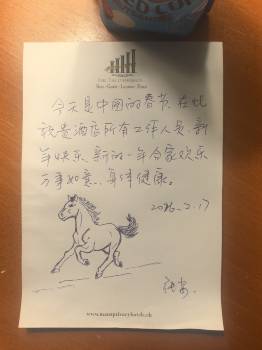 今天是中国的春节，在此
祝贵酒店所有工作人员，新
年快乐，新的一年合家欢乐
万事如意，身体健康。
2026.2.17
www.manzprivacyhotels.ch